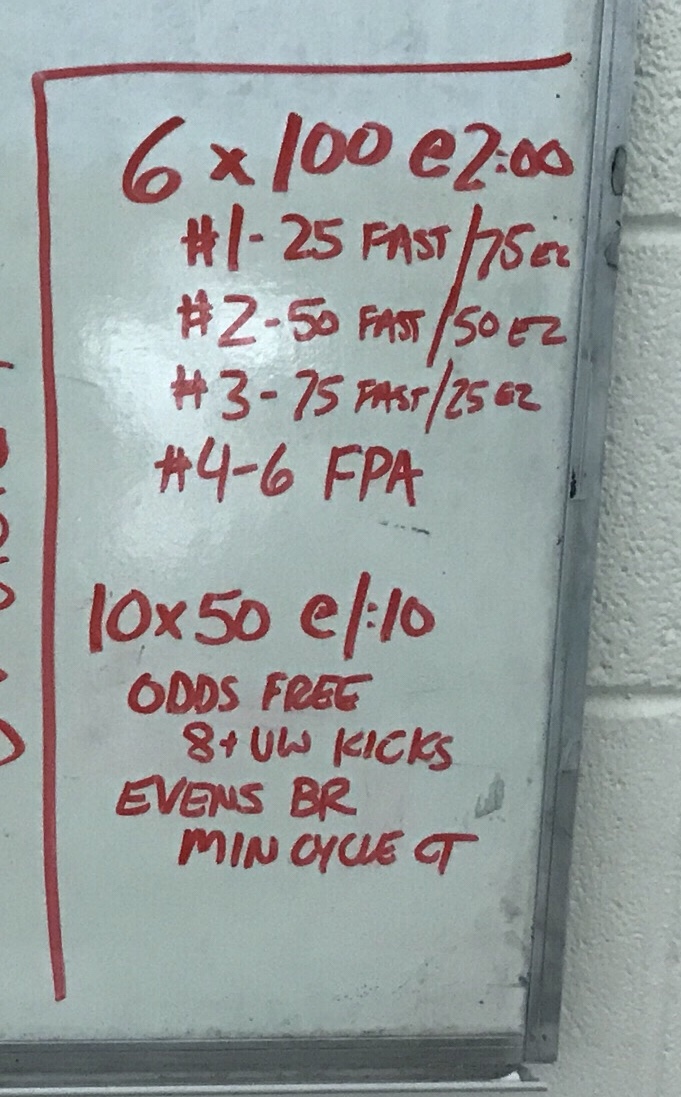 6 x 100 @2:00
#1- 25 FAST/75 EZ
#2-50 FAST/50 EZ
#3-75 FAST/25 EZ
#4-6 FPA
10x50 @1:10
ODDS FREE
8+ UW KICKS
EVENS BR
MIN CYCLE CT